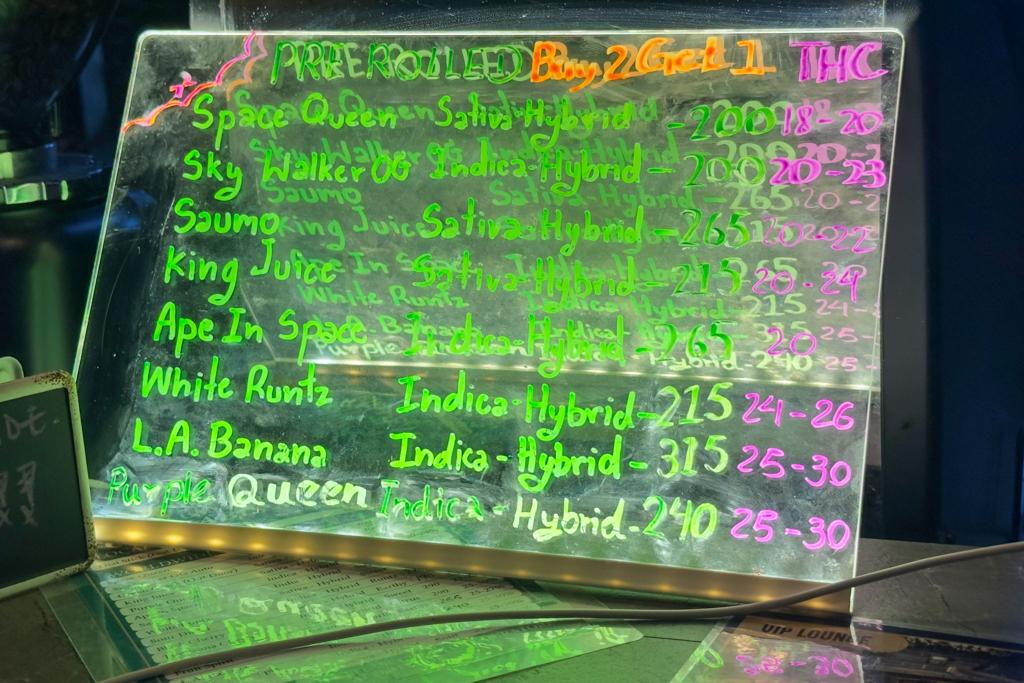 PRE ROLLED Buy 2 Get 1 THC
Space Queen Sativa-Hybrid - 200 18-20
Sky Walker OG Indica-Hybrid - 200 20-23
Saumo Sativa-Hybrid - 265 20-22
King Juice Sativa-Hybrid - 215 20-24
Ape In Space Indica-Hybrid - 265 20
White Runtz Indica-Hybrid - 215 24-26
L.A. Banana Indica - Hybrid - 315 25-30
Purple Queen Indica - Hybrid - 240 25-30
VIP LOUNGE